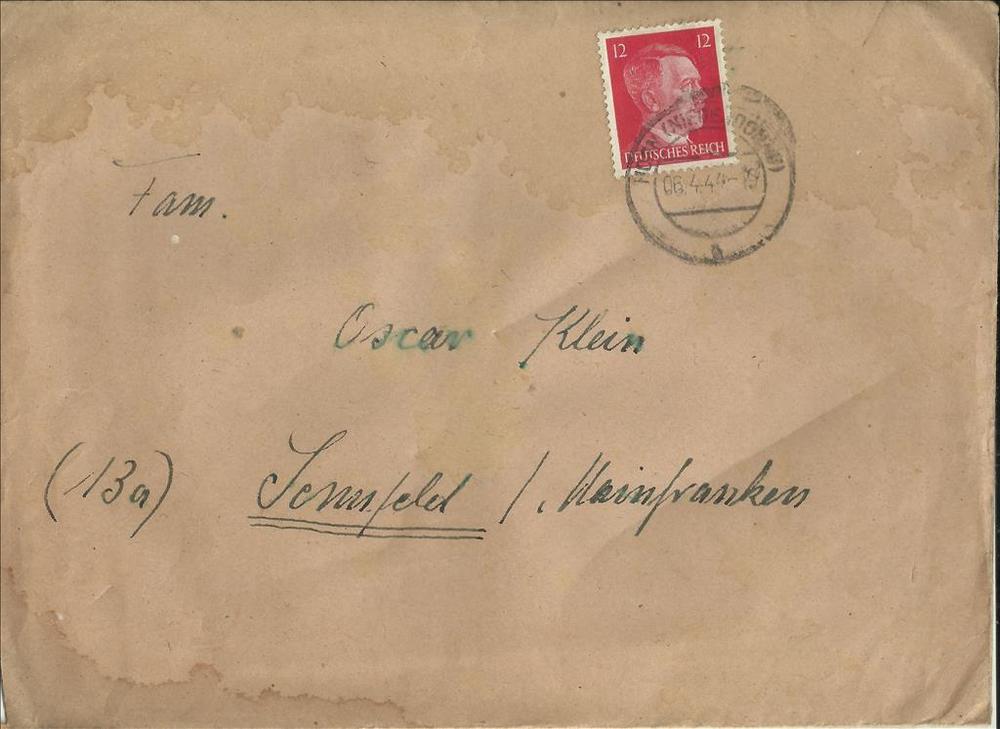 12 12
DEUTSCHES REICH
06.4.44-19
a
Fam.
Oscar Klein
(13a) Sennfeld /, Mainfranken